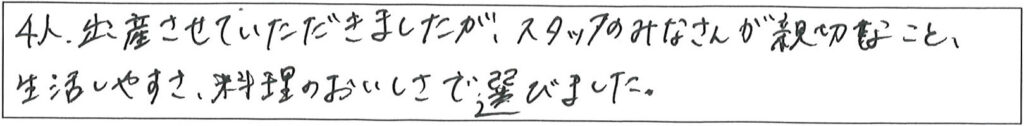 4人、出産させていただきましたが、スタッフのみなさんが親切なこと、
生活しやすさ、料理のおいしさで選びました。